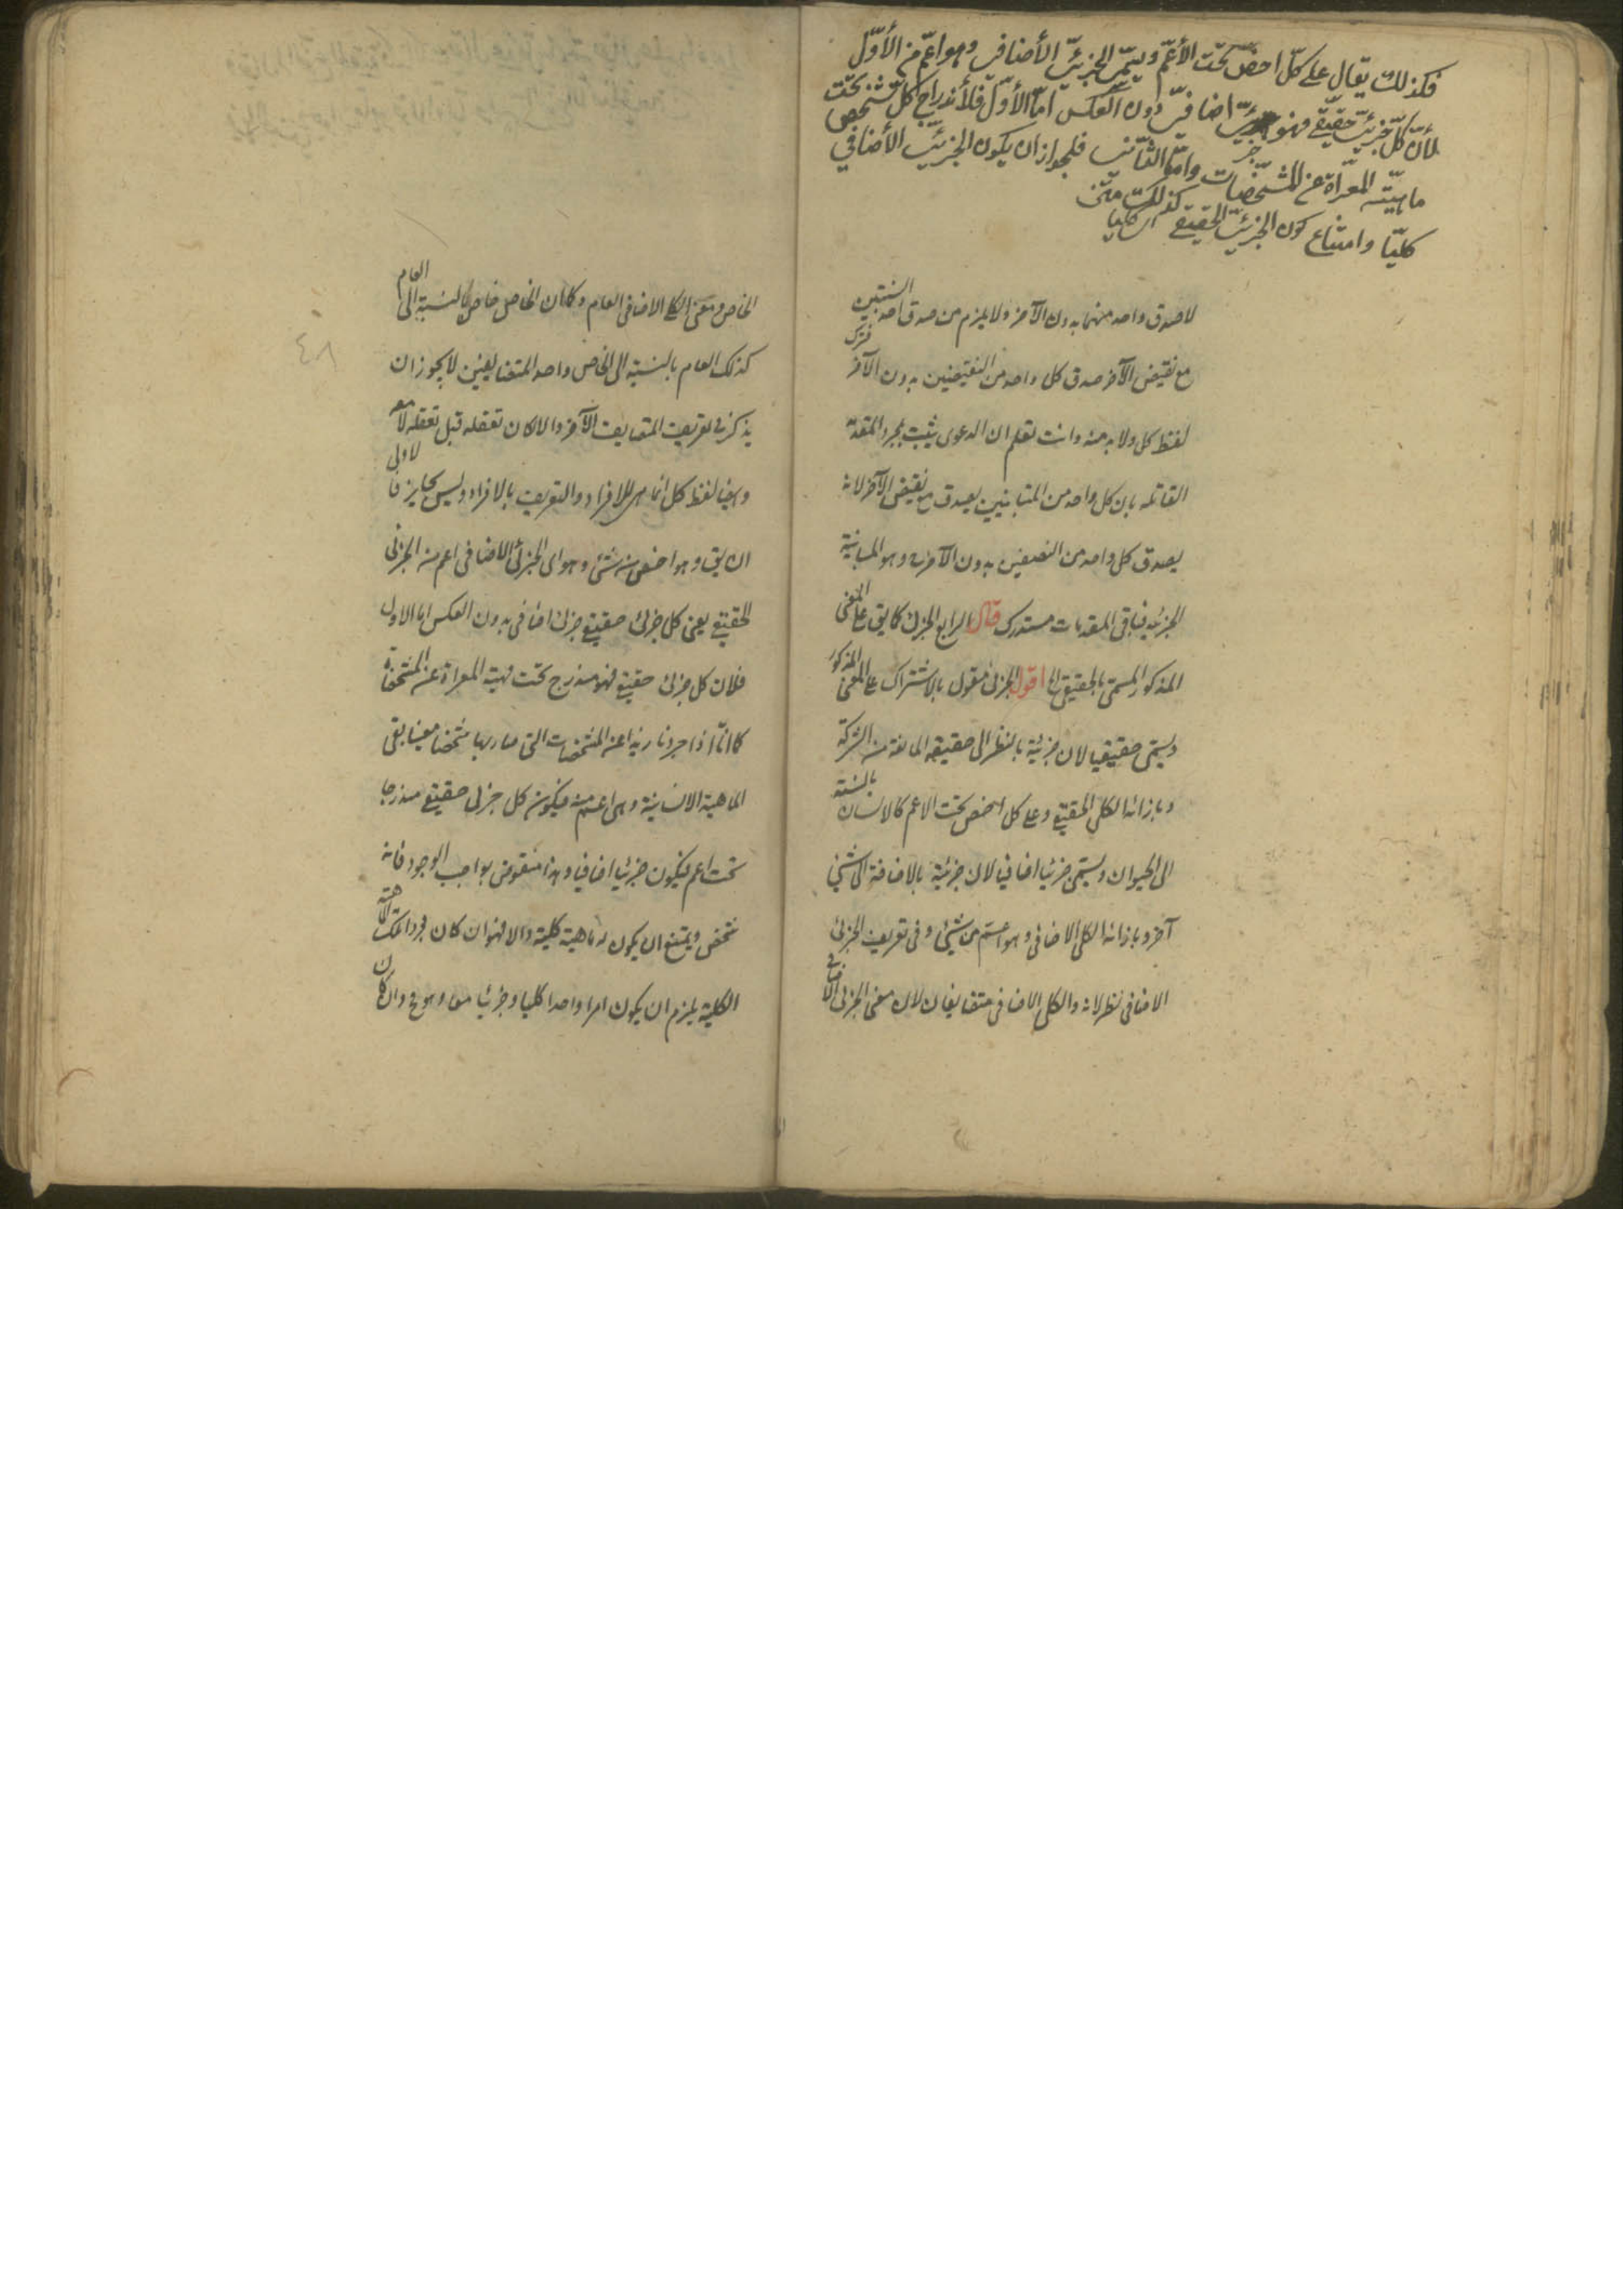 فكذلك يقال على كلّ اخصّ تحت الأعمّ ويسمّى الجزئيّ الأضافيّ وهو اعمّ من الأوّل
لأنّ كلّ جزئيّ حقيقّي فهو جزئيّ اضافيّ دون العكس امّا الأوّل فلأندراج كلّ شخص تحت
ماهيّته المعرّاة عن المشخّصات وامّا الثّانى فلجواز ان يكون الجزئيّ الأضافي
كليّا وامتناع كون الجزئيّ الحقيقي كذلك
لا صدق واحد منهما بدون الآخر ولا يلزم من صدق احد النسبتين
مع نقيض الآخر صدق كل واحد من النقيضين بدون الآخر فترك
لفظ كل ولا بد منه وانت تعلم ان الدعوى يثبت بمجرد المقدمة
القائلة بان كل واحد من المتباينين يصدق مع نقيض الآخر لانه
يصدق كل واحد من النقيضين بدون الآخر وهو المباينة
الجزئية فباقى المقدمات مستدرك قال الرابع الجزئى كما يق على المعنى
المذكور المسمى بالحقيقى الخ اقول الجزئى مقول بالاشتراك على المعنى المذكور
ويسمى حقيقيا لان جزئية بالنظر الى حقيقة المانعة من الشركة
وبازائه الكلى الحقيقى وعلى كل اخص تحت الاعم كالانسان بالنسبة
الى الحيوان ويسمى جزئيا اضافيا لان جزئية بالاضافة الى شئ
آخر وبازائه الكلى الاضافى وهو اعم من شئ وفى تعريف الجزئى
الاضافى نظر لانه والكلى الاضافى متضايفان لان معنى الجزئى الاضافى
الخاص ومعنى الكلى الاضافى العام وكما ان الخاص خاص بالنسبة الى العام
كذلك العام بالنسبة الى الخاص واحد المتضايفين لا يجوز ان
يذكر فى تعريف المتضايف الآخر والا لكان تعقله قبل تعقله لا معه
وايضا لفظ كل انما هى للافراد والتعريف بالافراد وليس بجايز فالاولى
ان يق وهو اخص من شئ وهو اى الجزئى الاضافى اعم من الجزئى
الحقيقى يعنى كل جزئى حقيقى جزئى اضافى بدون العكس اما الاول
فلان كل جزئى حقيقى فهو مندرج تحت مهيته المعراة عن المشخصات
كما انّا اذا جردنا زيدا عن المشخصات التى صار بها شخصا معينا بقى
الماهية الانسانية وهى اعم منه فيكون كل جزئى حقيقى مندرجا
تحت اعم فيكون جزئيا اضافيا وهذا منقوض بواجب الوجود فانه
شخص ويمتنع ان يكون له ماهية كلية والا فهو ان كان مجرد تلك الماهية
الكلية يلزم ان يكون امر واحد كليا وجزئيا معا وهو مح وان كان
٤٨